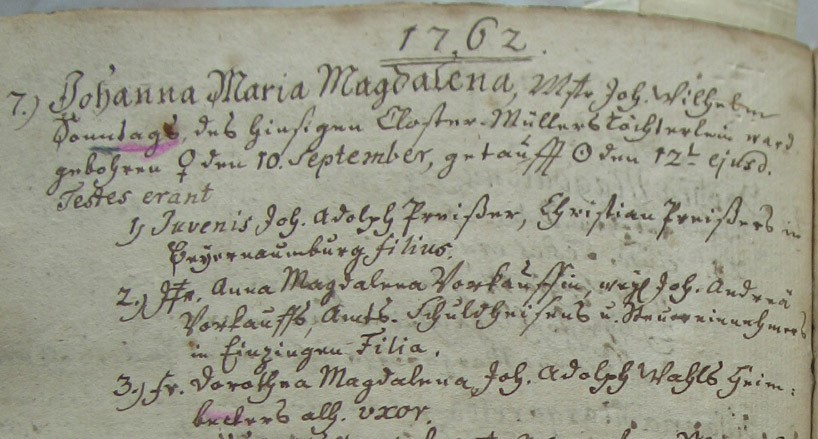 1762.
7.) Johanna Maria Magdalena, Mstr. Joh. Wilhelm
Sonntags, des hiesigen Closter-Müllers töchterlein ward
gebohren ♀ den 10. September, getaufft ☉ den 12t ejusd.
Testes erant
1) Juvenis Joh. Adolph Preißer, Christian Preißers in
Beyernaumburg filius.
2.) Jfr. Anna Magdalena Vorkauffin, weyl. Joh. Andreä
Vorkauffs, Amts-Schuldheisens u. Steuereinnehmers
in Einzingen Filia.
3.) Fr. Dorothea Magdalena, Joh. Adolph Wahls Heim-
beckers alh. uxor.